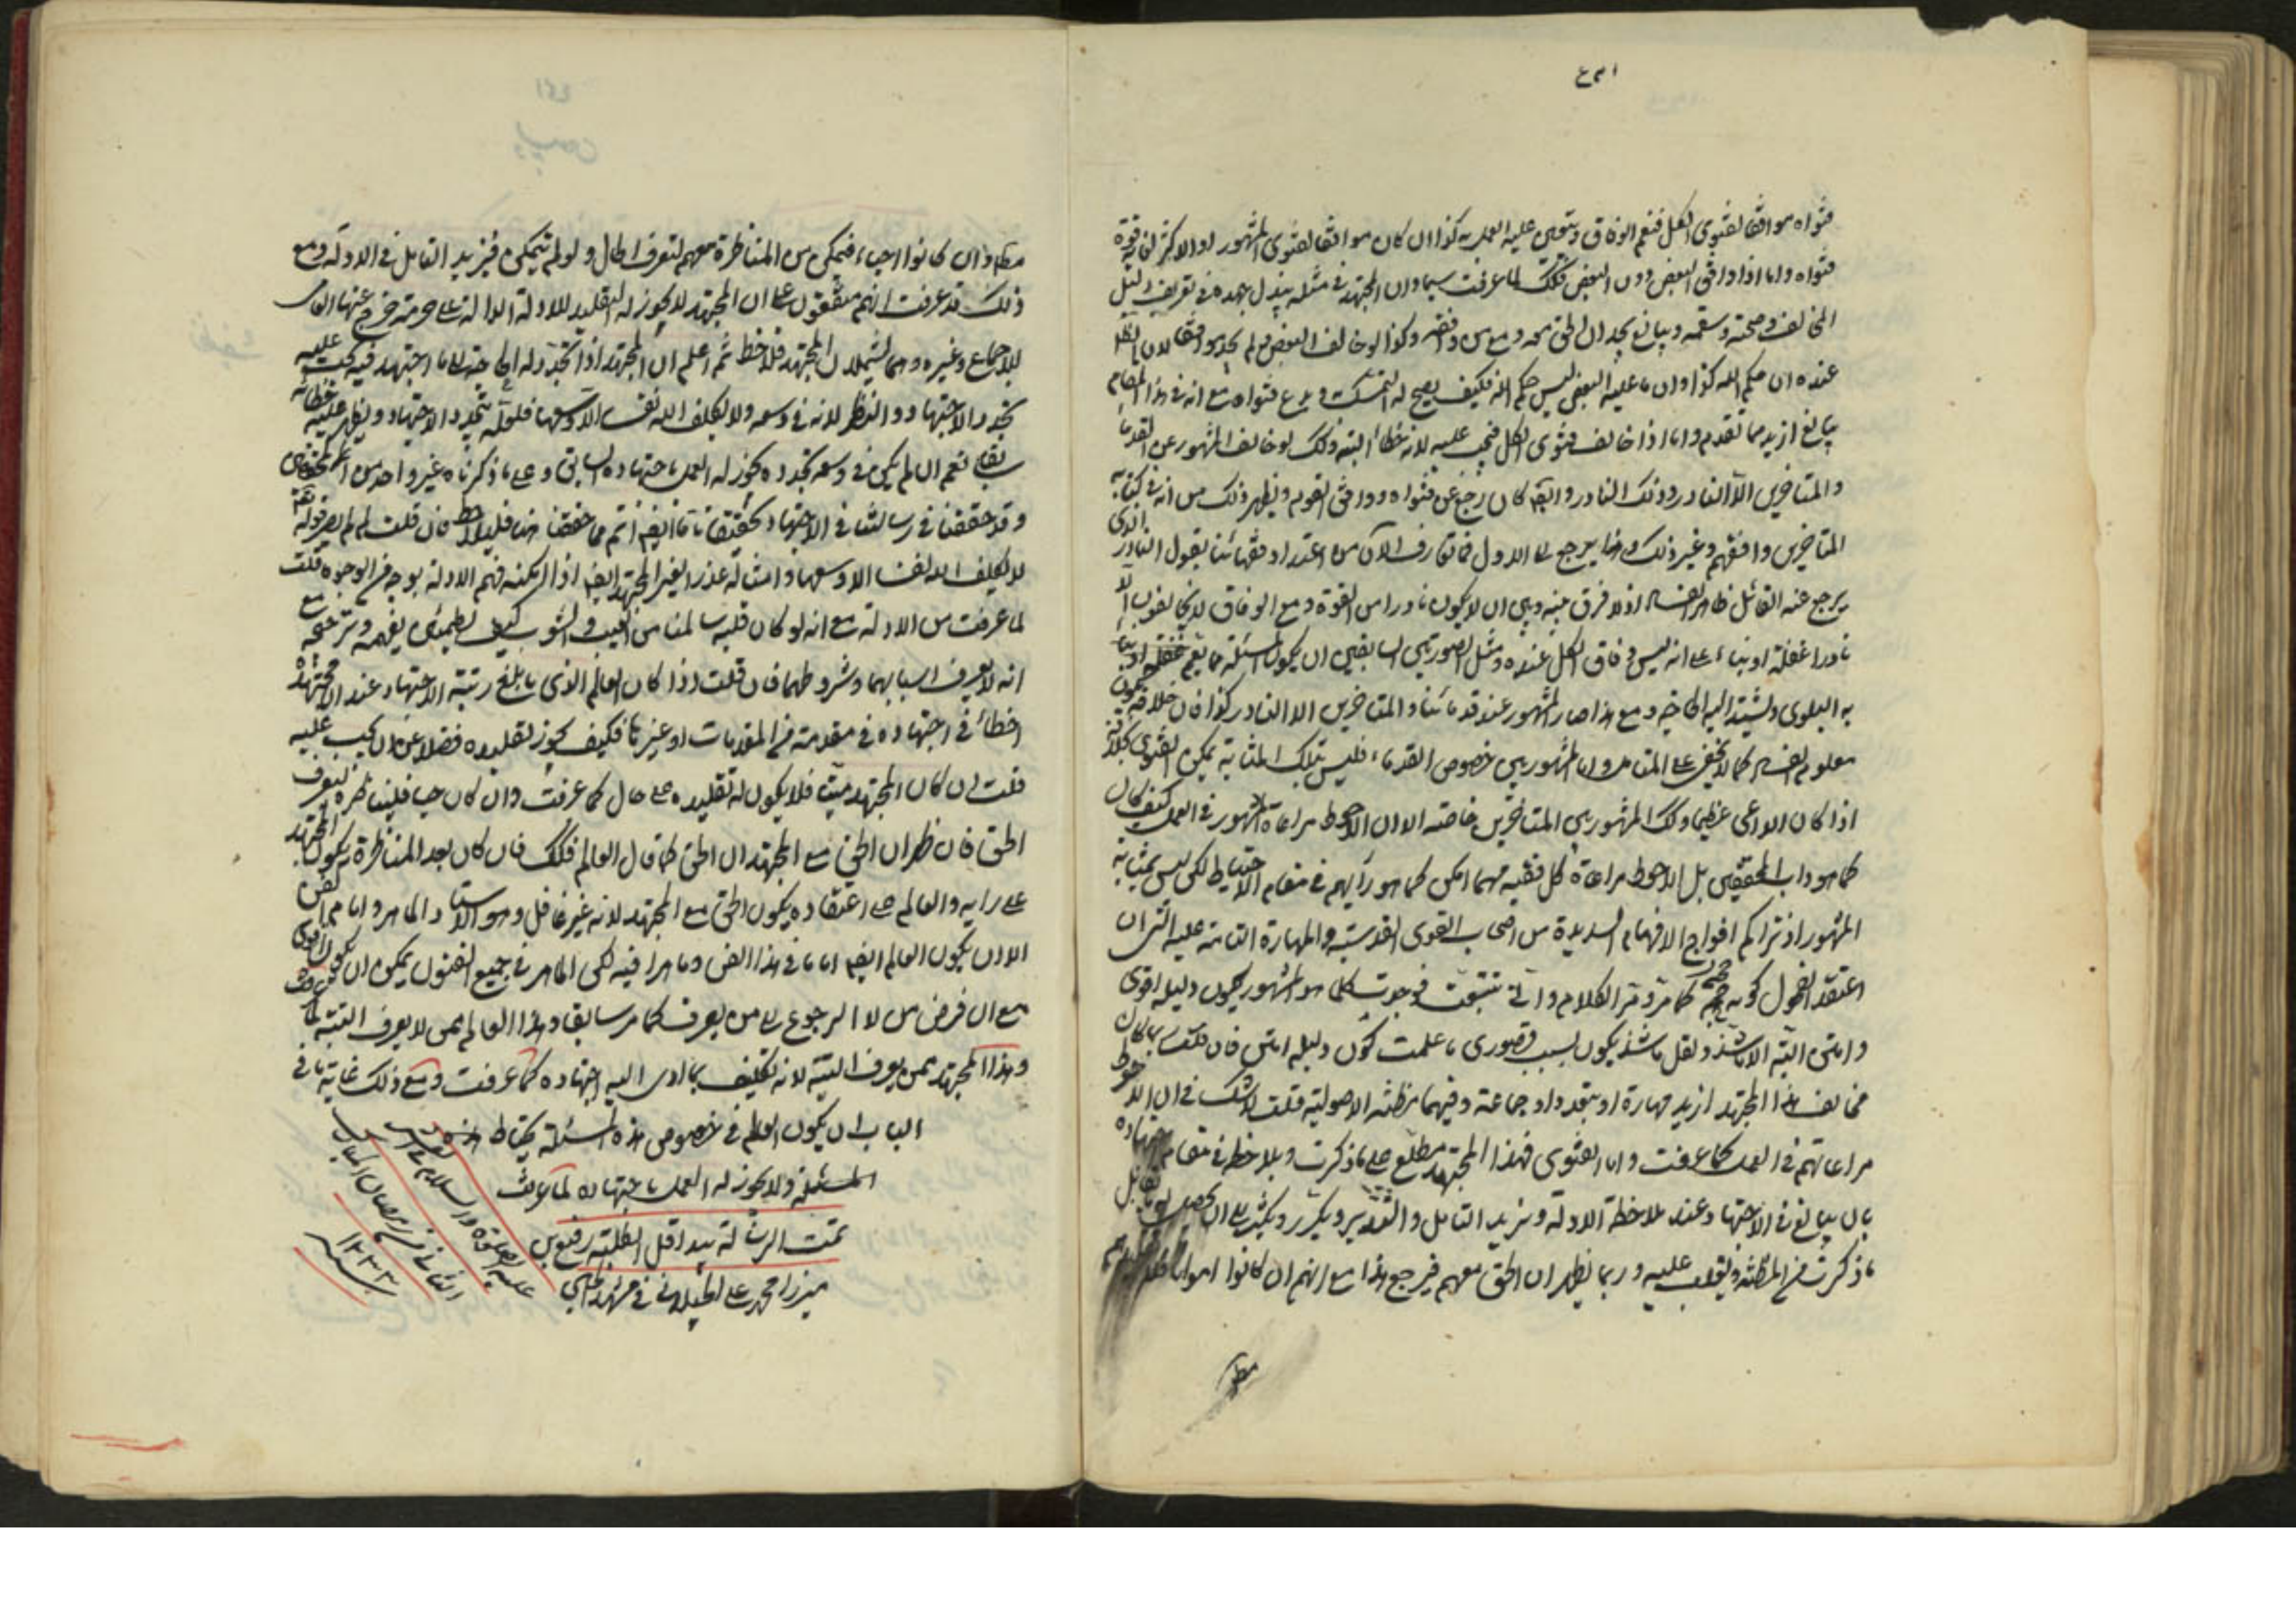 فتواه موافقا لفتوى الكل فنعم الوفاق ويتعين عليه العمل به كذا ان كان موافقا لفتوى المشهور او الاكثر
فتواه واما اذا وافق البعض دون البعض فكك لما عرفت سيما وان المجتهد في مثله يبذل جهده في تعريف دليل
المخالف وصحته وسقمه ويبالغ ان الحق معه ومع من وافقه وكذا لو خالف البعض ولم يجد موافقا لان
عنده ان حكم الله كذا وان ما عليه البعض ليس حكم الله فكيف يصح له التمسك ويدع فتواه مع انه في هذا المقام
يبالغ ازيد مما تقدم واما اذا خالف فتوى الكل عليه لانه خطأ البتة وكك لو خالف المشهور من القدماء
والمتاخرين الا النادر وذلك النادر وايضا كان رجع عن فتواه ووافق القوم ويظهر ذلك من انه في كتابه
المتاخرين وافقهم وغير ذلك وهذا يرجع الى الاول فما تعارف الآن من اعتداد فقهائنا بقول النادر الذي
يرجع عنه القائل ظاهر الفساد اذ لا فرق بينه وبين ان لا يكون نادرا من القوة ومع الوفاق لا يخالفون الا
نادرا غفلة او بناء على انه ليس وفاق الكل عنده ومثل الصورتين السابقتين ان يكون المسئلة مما يعم
به البلوى ويشتد اليه الحاجة ومع هذا صار المشهور عند قدمائنا والمتاخرين الا النادر كذا فان خلافه
معلوم الفساد كما لا يخفى على المتامل واما المشهور بين خصوص القدماء فليس بتلك المثابة يمكن الفتوى بخلافه
اذا كان الداعي عظيما وكك المشهور بين المتاخرين خاصة الا ان الاحوط مراعاة المشهور في العمل كيف كان
كما هو داب المحققين بل الاحوط مراعاة كل فقيه مهما امكن كما هو رأيهم في مقام الاحتياط لكن ليس بمثابة
المشهور اذ تراكم افواج الافهام السديدة من اصحاب القوى القدسية والمهارة التامة عليه الى ان
اعتقد الفحول كونه حجة كما مر وتمر الكلام واني تتبعت فوجدت كلما هو المشهور يكون دليله اقوى
وامتن البتة الا ما شذ ولعل ما شذ يكون بسبب قصوري ما علمت كون دليله امتن فان قلت ربما كان
مخالف هذا المجتهد ازيد مهارة او بتعدد او جماعة وفيهما مظنة الاصولية قلت لا شك في ان الاحوط
مراعاتهم في العمل كما عرفت واما الفتوى فهذا المجتهد مطلع على ما ذكرت ويلاحظه في مقام اجتهاده
بان يبالغ في الاجتهاد وعند ملاحظة الادلة ويزيد التامل والتدبر ويكرر ويكثر الى ان يحصل
ما ذكرت من المظنة ويغلب عليه وربما يظهر ان الحق معهم فيرجع هذا مع انهم ان كانوا امواتا
وان كانوا احياء فيمكن من المناظرة معهم لتعرف الحال ولو لم يتمكن فيزيد التامل في الادلة ومع
ذلك قد عرفت انهم متفقون على ان المجتهد لا يجوز له التقليد للادلة الدالة على حرمته خرج عنها العامي
للاجماع وغيره وهما لا يشملان المجتهد فلاحظ ثم اعلم ان المجتهد اذا تجدد له الحاجة الى ما اجتهد فيه يجب عليه
تجديد الاجتهاد والنظر لانه في وسعه ولا يكلف الله نفسا الا وسعها فلعله بتجدد الاجتهاد ويظهر عليه خطائه
سابقا نعم ان لم يكن في وسعه تجدده يجوز له العمل باجتهاده السابق وعلى ما ذكرناه غير واحد من المحققين
وقد حققنا في رسالتنا في الاجتهاد تحقيقاتنا ايضا اتم مما حققنا هنا فليلاحظ فان قلت لم لم يصر قوله تعالى
لا يكلف الله نفسا الا وسعها وامثاله عذرا لغير المجتهد ايضا اذا لم يمكنه فهم الادلة بوجه من الوجوه قلت
لما عرفت من الادلة مع انه لو كان قلبه سالما من العيب والشوب كيف يطمئن بفهمه وترجيحه مع
انه لا يعرف اسبابهما وشروطهما فان قلت اذا كان العالم الذي ما بلغ رتبة الاجتهاد عند المجتهد
اخطأ في اجتهاده في مقدمة من المقدمات او غيرها فكيف يجوز تقليده فضلا عن ان يجب عليه
قلت ان كان المجتهد ميتا فلا يكون له تقليده على حال كما عرفت وان كان حيا فليناظره ليعرف
الحق فان ظهر ان الحق مع المجتهد ان الحق كما قال العالم فكك فان كان بعد المناظرة يكون المجتهد
على رايه والعالم على اعتقاده يكون الحق مع المجتهد لانه غير غافل وهو الاستاد الماهر واما
الا ان يكون العالم ايضا اماما في هذا الفن وماهرا فيه لكن الماهر في جميع الفنون يمكن ان يكون
مع ان فرض من لا الرجوع الى من يعرف كما مر سابقا وهذا العالم ممن لا يعرف البتة
وهذا المجتهد ممن يعرف البتة لانه تكليفه بما ادى اليه اجتهاده كما عرفت ومع ذلك غاية ما في
الباب ان يكون العالم في خصوص هذه المسئلة يحتاط هذه
المسئلة ولا يجوز له العمل باجتهاده لما عرفت
تمت الرسالة بيد اقل الطلبة رفيع بن
ميرزا محمد علي الجيلاني في مشهد
عليه الصلوة والسلام
الثاني من شهر رمضان المبارك
سنة ١٢٣٣